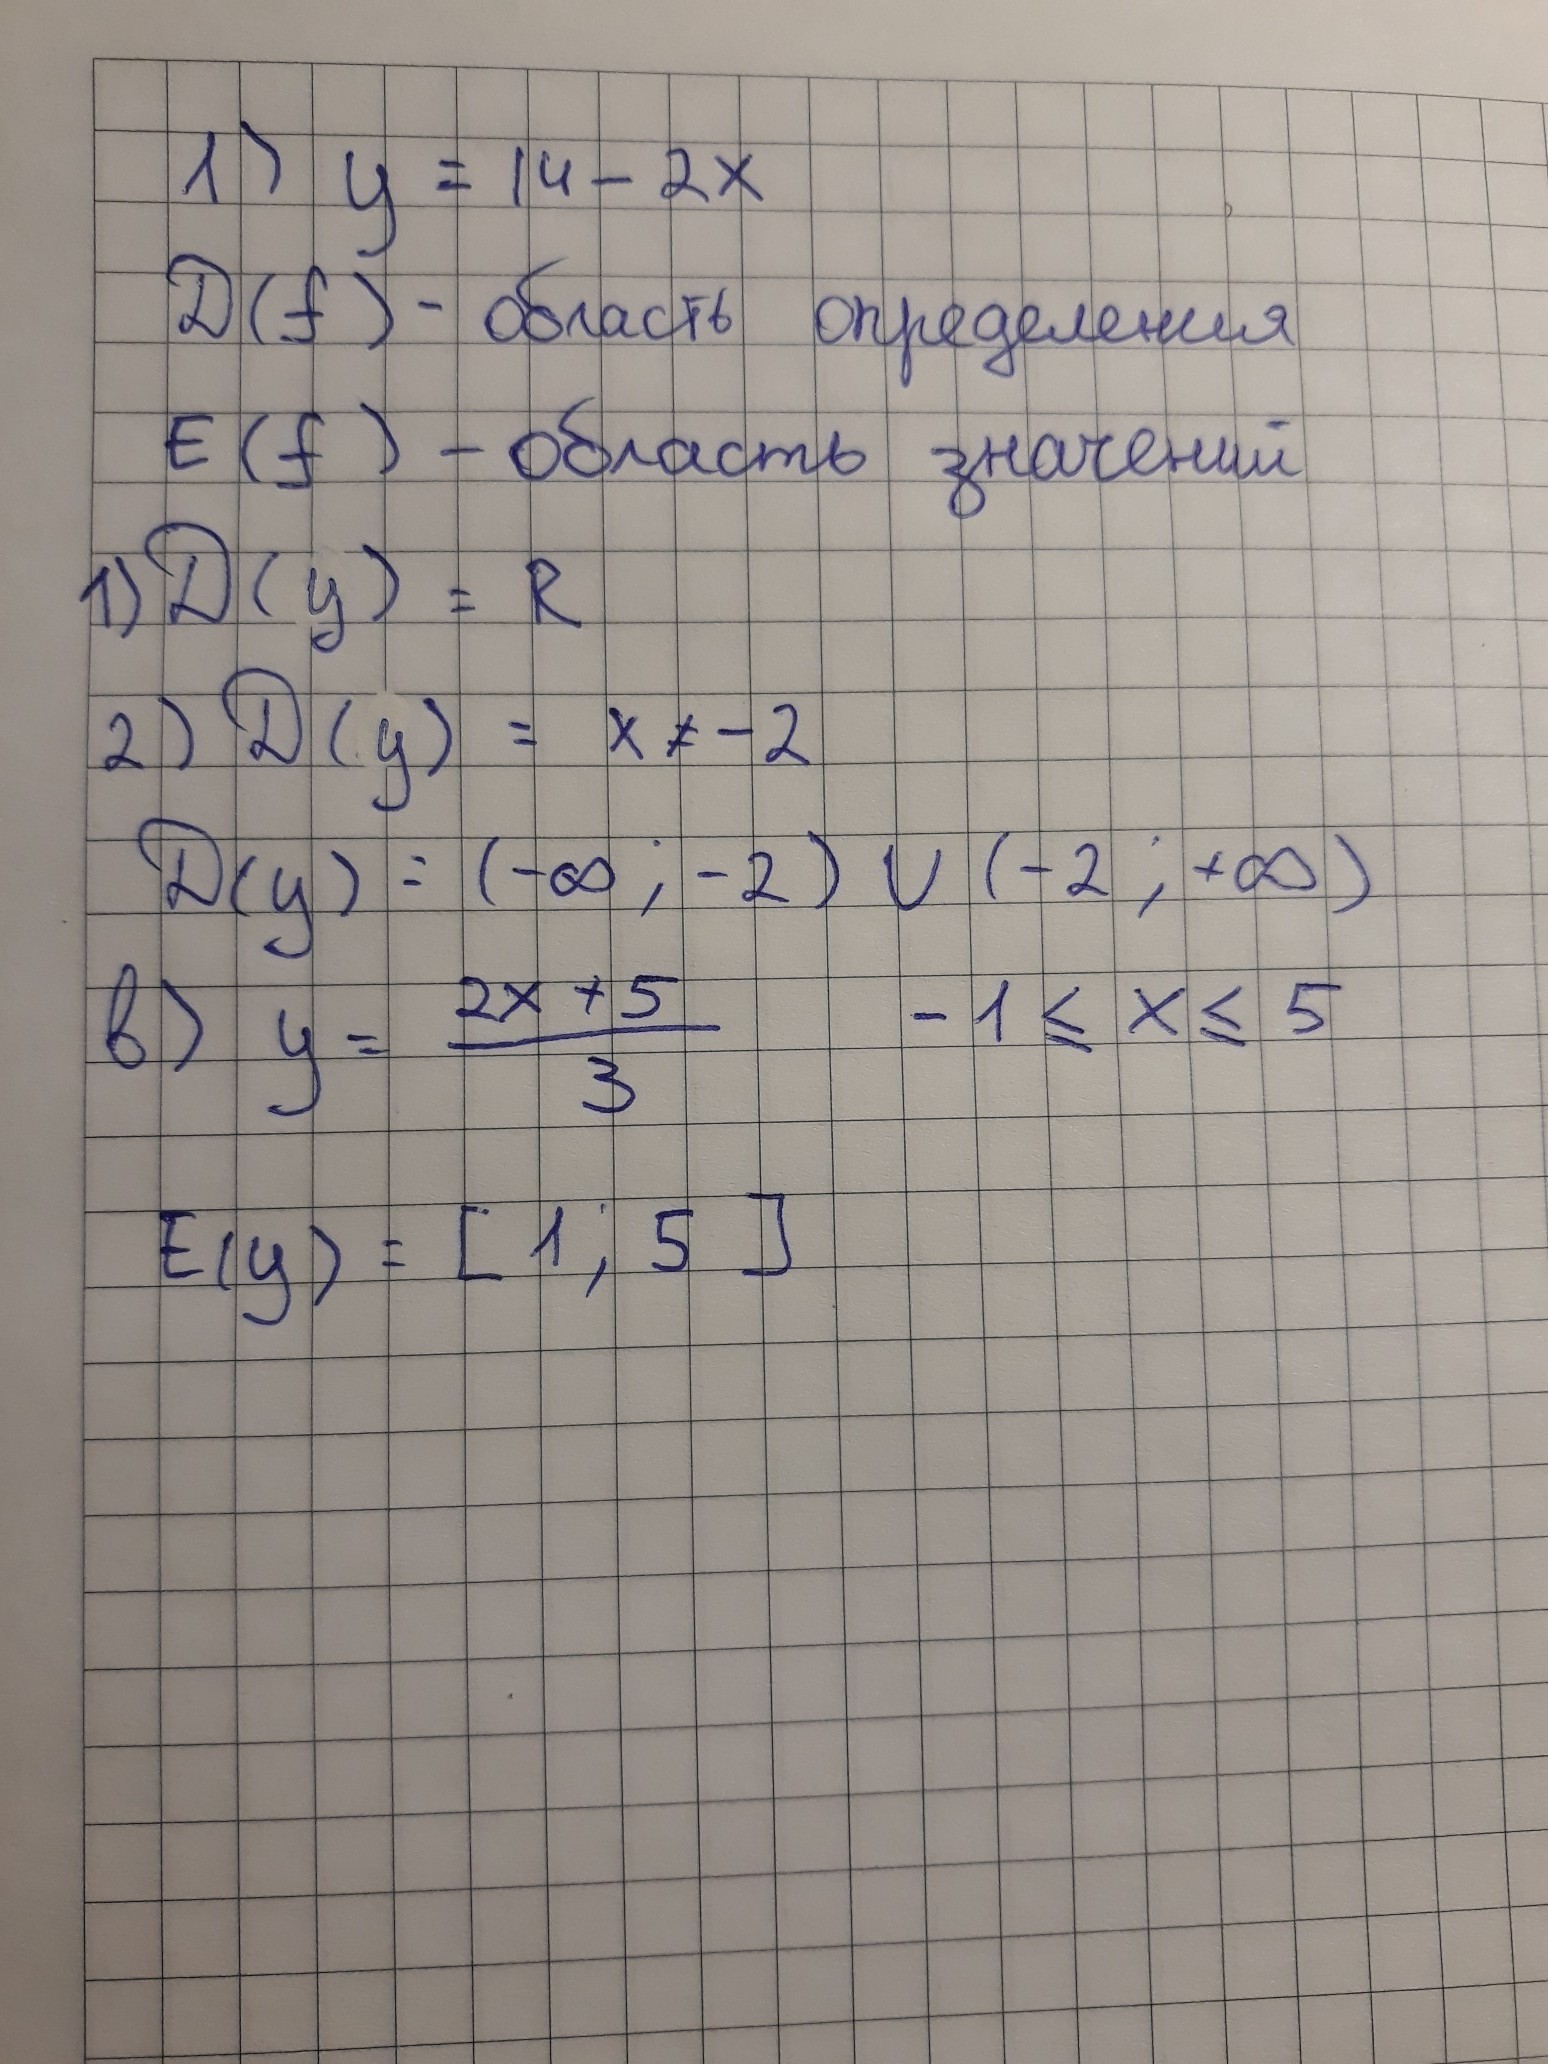 1) y = 14 - 2x
D(f) - область определения
E(f) - область значений
1) D(y) = R
2) D(y) = x ≠ -2
D(y) = (-∞; -2) ∪ (-2; +∞)
в) y = (2x + 5)/3 -1 ≤ x ≤ 5
E(y) = [1; 5]